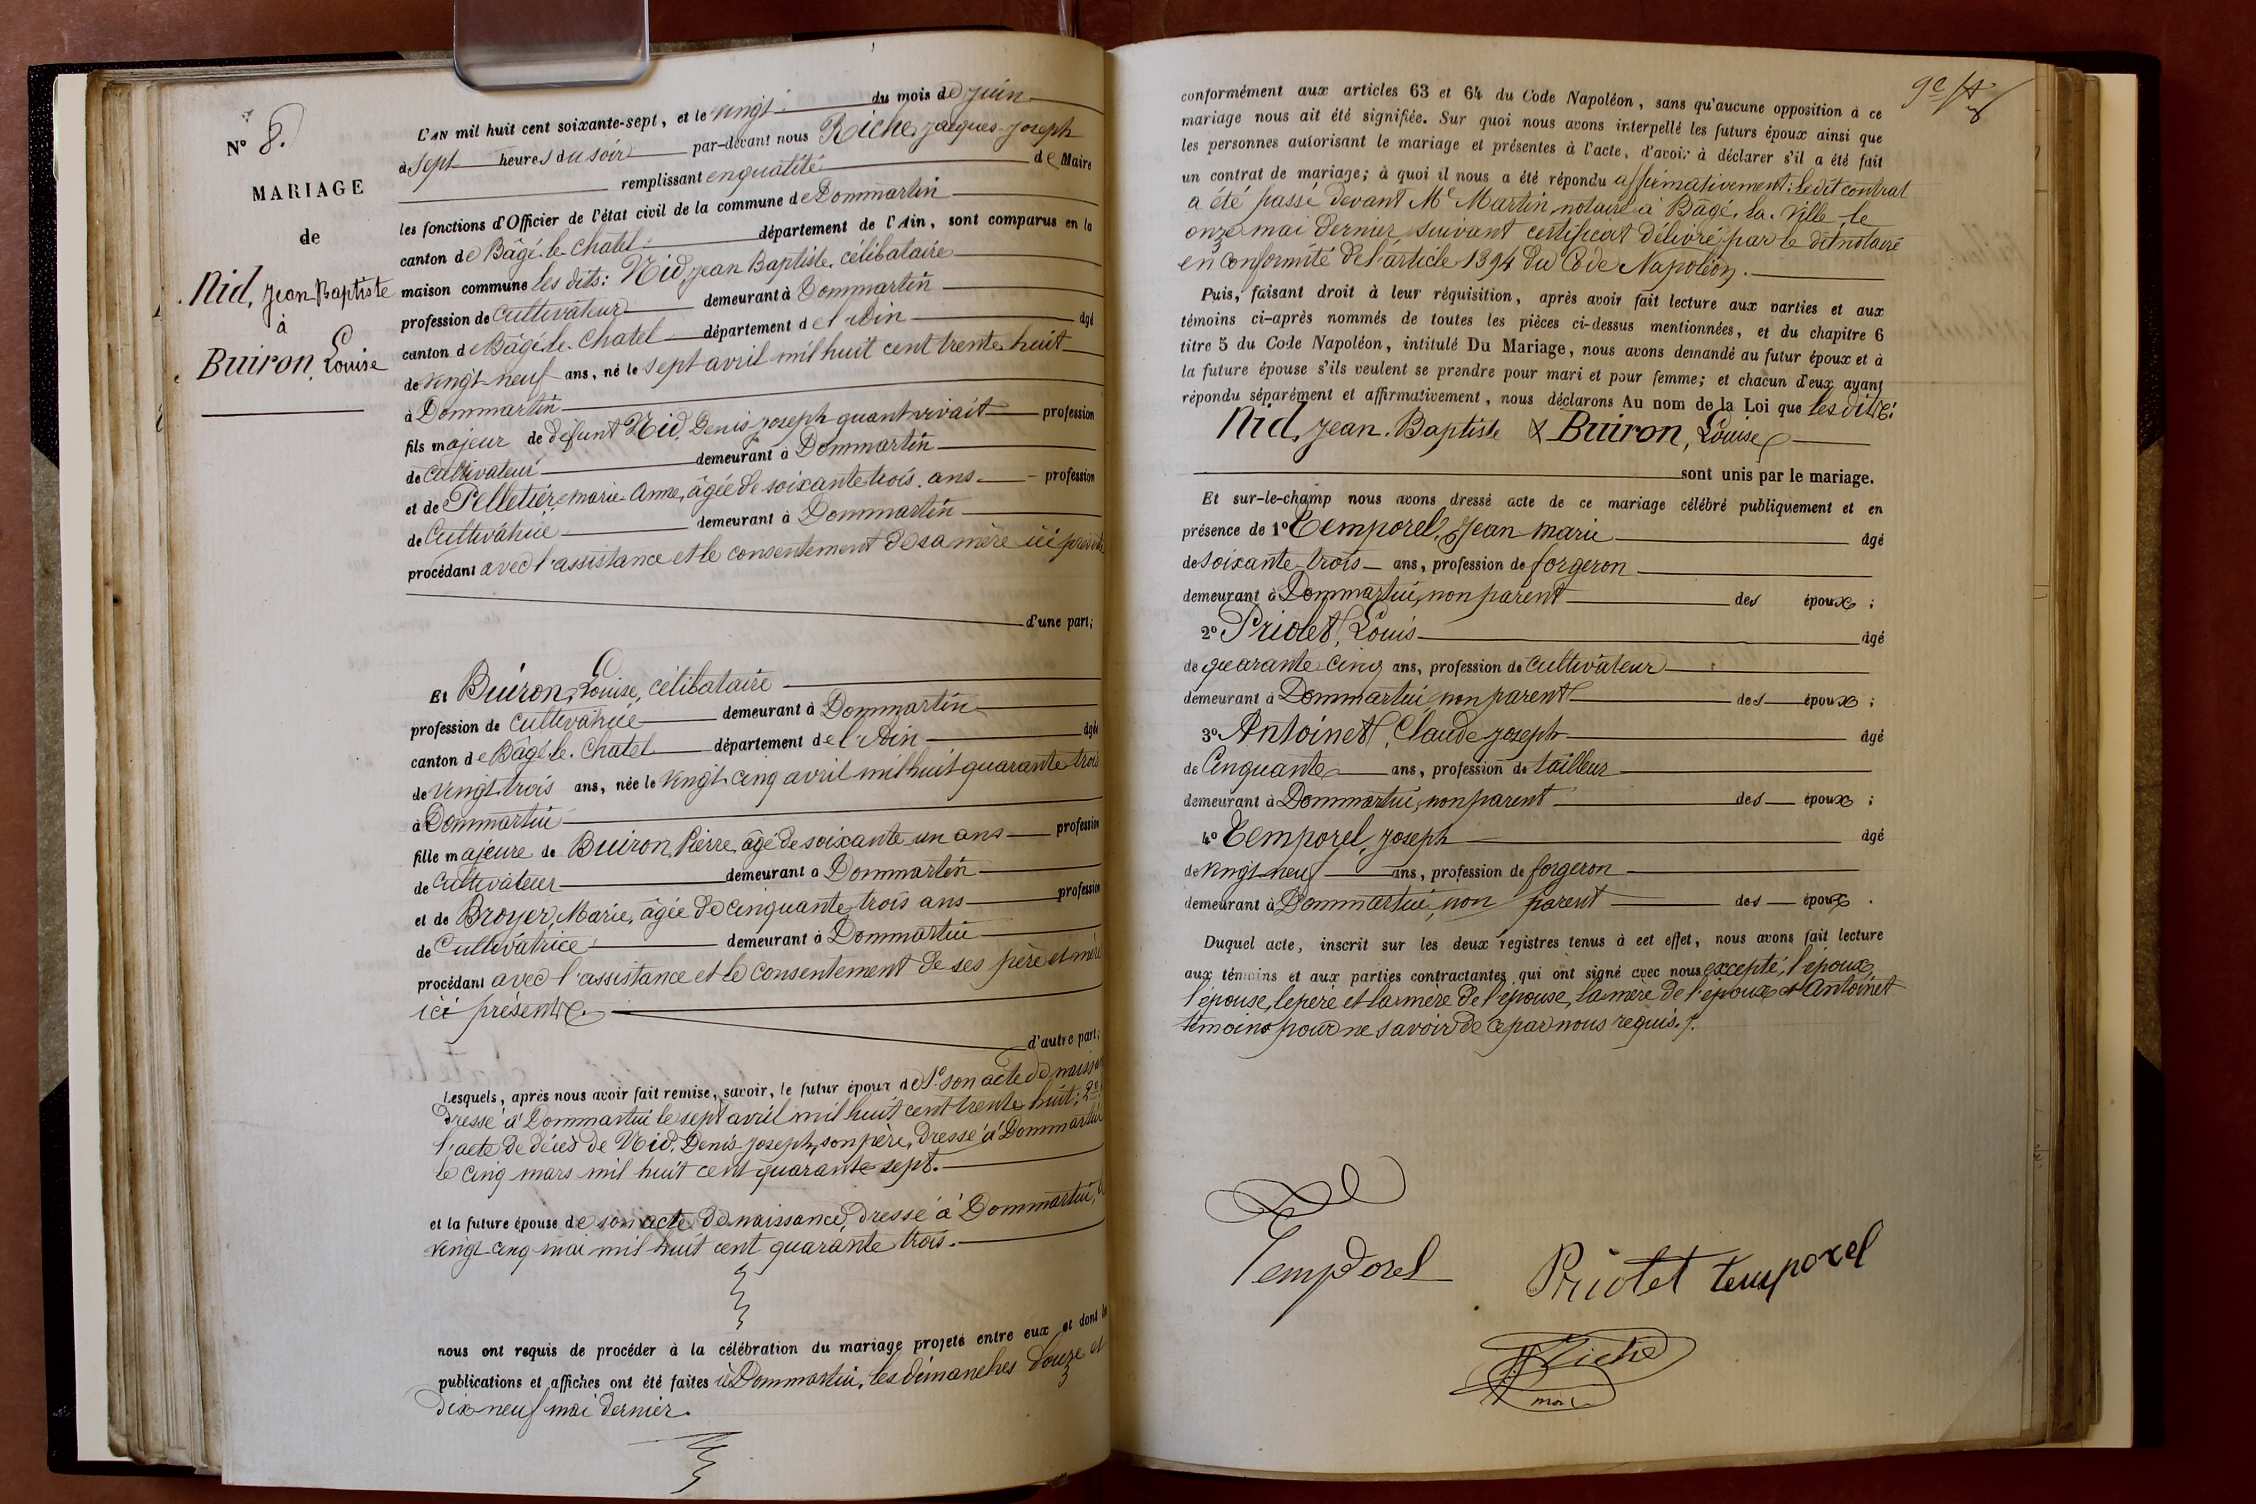 N° 8.
MARIAGE
de
Nid, Jean Baptiste
à
Buiron, Louise
L'AN mil huit cent soixante-sept, et le vingt du mois de juin
à sept heures du soir par-devant nous Riche, Jacques-Joseph
remplissant en qualité de Maire
les fonctions d'Officier de l'état civil de la commune de Dommartin
canton de Bâgé-le-Chatel département de l'Ain, sont comparus en la
maison commune les dits: Nid, Jean Baptiste, célibataire
profession de cultivateur demeurant à Dommartin
canton de Bâgé-le-Chatel département de l'Ain âgé
de vingt-neuf ans, né le sept avril mil huit cent trente huit
à Dommartin
fils majeur de défunt Nid, Denis-Joseph quant vivait profession
de cultivateur demeurant à Dommartin
et de Pelletier, Marie-Anne, âgée de soixante trois ans profession
de Cultivatrice demeurant à Dommartin
procédant avec l'assistance et le consentement de sa mère ici présente
d'une part;
Et Buiron, Louise, célibataire
profession de Cultivatrice demeurant à Dommartin
canton de Bâgé-le-Chatel département de l'Ain âgée
de vingt-trois ans, née le vingt-cinq avril mil huit quarante trois
à Dommartin
fille majeure de Buiron, Pierre, âgé de soixante un ans profession
de Cultivateur demeurant à Dommartin
et de Broyer, Marie, âgée de cinquante trois ans profession
de Cultivatrice demeurant à Dommartin
procédant avec l'assistance et le consentement de ses père et mère
ici présents.
d'autre part;
Lesquels, après nous avoir fait remise, savoir, le futur époux de 1° son acte de naissan
dressé à Dommartin le sept avril mil huit cent trente huit; 2°
l'acte de décès de Nid, Denis-Joseph, son père, dressé à Dommartin
le cinq mars mil huit cent quarante sept.
et la future épouse de son acte de naissance, dressé à Dommartin, le
vingt-cinq mai mil huit cent quarante trois.
nous ont requis de procéder à la célébration du mariage projeté entre eux et dont les
publications et affiches ont été faites à Dommartin, les dimanches douze et
dix-neuf mai dernier.
conformément aux articles 63 et 64 du Code Napoléon, sans qu'aucune opposition à ce
mariage nous ait été signifiée. Sur quoi nous avons interpellé les futurs époux ainsi que
les personnes autorisant le mariage et présentes à l'acte, d'avoir à déclarer s'il a été fait
un contrat de mariage; à quoi il nous a été répondu affirmativement: ledit contrat
a été passé devant Me Martin, notaire à Bâgé-la-Ville le
onze mai dernier suivant certificat délivré par le dit notaire
en conformité de l'article 1394 du Code Napoléon.
Puis, faisant droit à leur réquisition, après avoir fait lecture aux parties et aux
témoins ci-après nommés de toutes les pièces ci-dessus mentionnées, et du chapitre 6
titre 5 du Code Napoléon, intitulé Du Mariage, nous avons demandé au futur époux et à
la future épouse s'ils veulent se prendre pour mari et pour femme; et chacun d'eux ayant
répondu séparément et affirmativement, nous déclarons Au nom de la Loi que les dits:
Nid, Jean-Baptiste & Buiron, Louise
sont unis par le mariage.
Et sur-le-champ nous avons dressé acte de ce mariage célébré publiquement et en
présence de 1° Temporel, Jean Marie âgé
de soixante-trois ans, profession de forgeron
demeurant à Dommartin, non parent des époux;
2° Priolet, Louis âgé
de quarante cinq ans, profession de cultivateur
demeurant à Dommartin, non parent des époux;
3° Antoinet, Claude Joseph âgé
de Cinquante ans, profession de tailleur
demeurant à Dommartin, non parent des époux;
4° Temporel, Joseph âgé
de vingt-neuf ans, profession de forgeron
demeurant à Dommartin, non parent des époux.
Duquel acte, inscrit sur les deux registres tenus à cet effet, nous avons fait lecture
aux témoins et aux parties contractantes qui ont signé avec nous excepté, l'époux,
l'épouse, le père et la mère de l'épouse, la mère de l'époux & Antoinet
témoins pour ne savoir de ce par nous requis.
Temporel
Priolet temporel
Riche